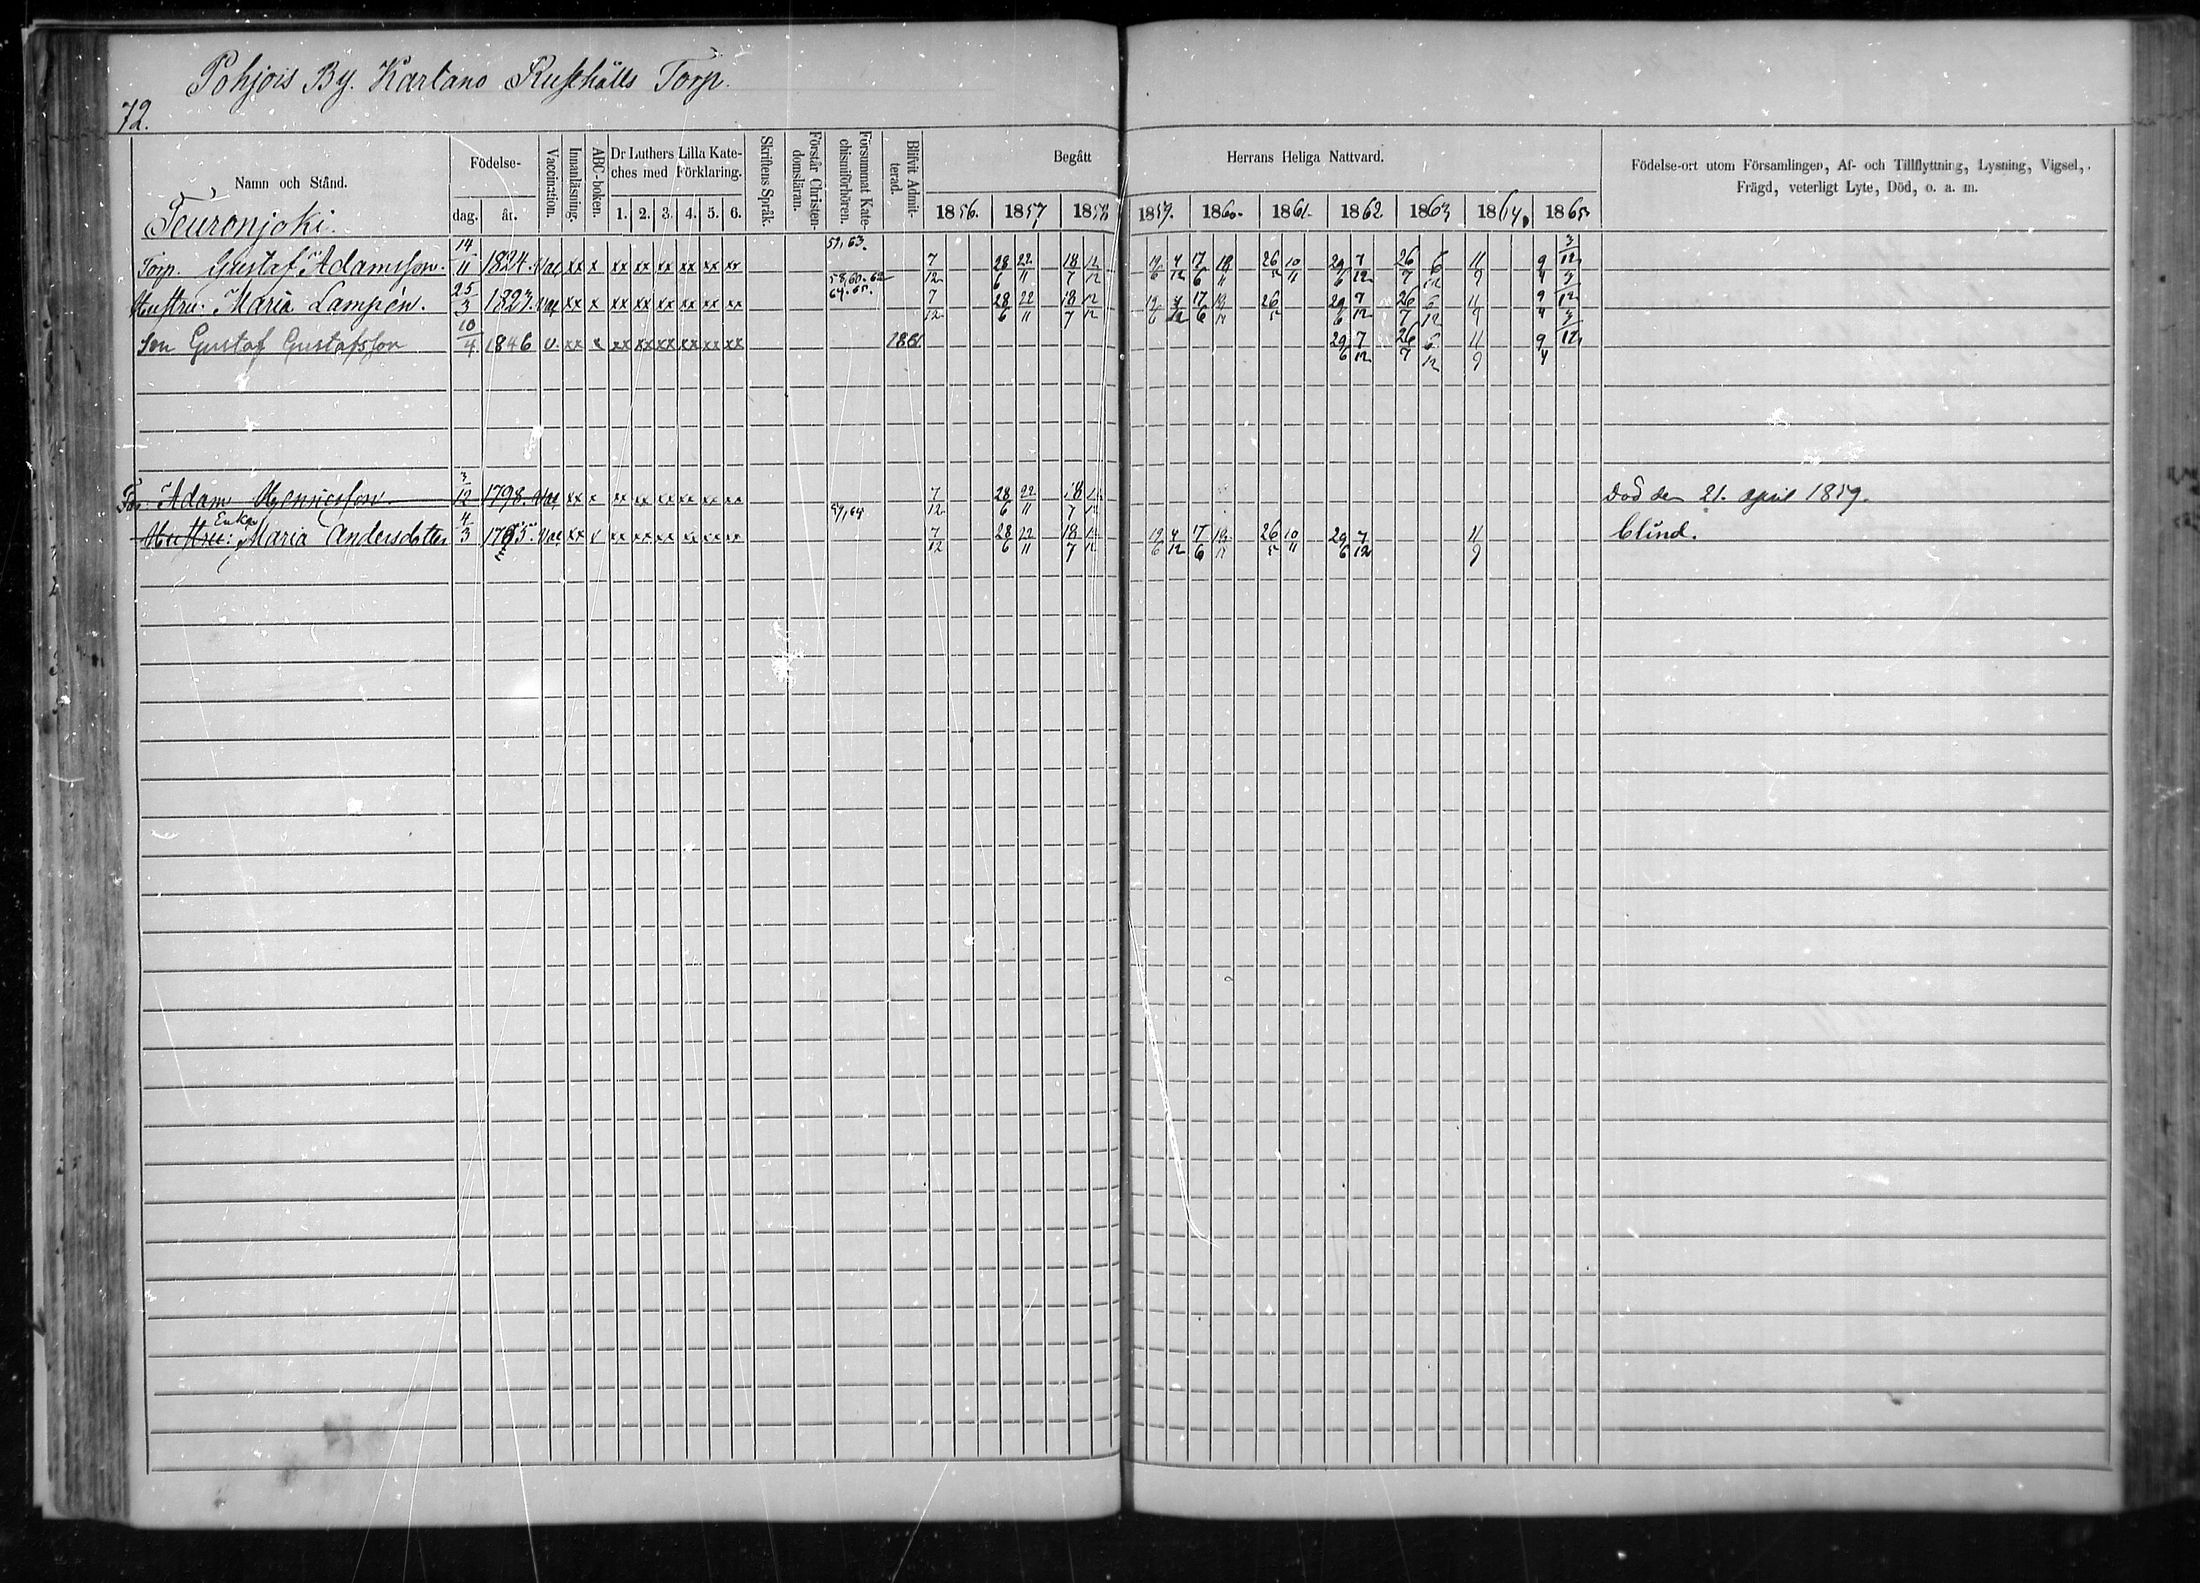 Pohjois By. Kartano Rusthålls Torp.
72.
Namn och Stånd.
Födelse-
dag. år.
Vaccination.
Innanläsning.
ABC-boken.
Dr Luthers Lilla Kate-
ches med Förklaring.
1. 2. 3. 4. 5. 6.
Skriftens Språk.
Förstår Christen-
domsläran.
Försummat Kate-
chismiförhören.
Blifvit Admit-
terad.
Begått Herrans Heliga Nattvard.
1856. 1857 1858 1859. 1860. 1861. 1862. 1863 1864. 1865.
Födelse-ort utom Församlingen, Af- och Tillflyttning, Lysning, Vigsel,
Frägd, veterligt Lyte, Död, o. a. m.
Teuronjoki.
Torp. Gustaf Adamsson. 14/11 1824. Vac xx x xx xx xx xx xx xx 59, 63. 7/12 28/6 22/11 18/7 12/12 19/6 4/12 17/6 18/11 26/5 10/11 29/6 7/12 26/7 6/12 11/9 9/4 3/12
Hustru: Maria Lampén. 25/3 1823. Vac xx x xx xx xx xx xx xx 58, 60. 62 64. 65. 7/12 28/6 22/11 18/7 12/12 19/6 4/12 17/6 18/11 26/5 29/6 7/12 26/7 6/12 11/9 9/4 3/12
Son Gustaf Gustafsson 10/4 1846 v xx x xx xx xx xx xx xx 1861 29/6 7/12 26/7 6/12 11/9 9/4 3/12
Far: Adam Henricsson. 3/12 1798. Vac xx x xx xx xx xx xx xx 7/12 28/6 22/11 18/7 12/12 Död den 21. april 1859.
Hustru: Enka Maria Andersdotter 4/3 1795. Vac xx v xx xx xx xx xx xx 59, 64 7/12 28/6 22/11 18/7 12/12 19/6 4/12 17/6 18/11 26/5 10/11 29/6 7/12 11/9 blind.